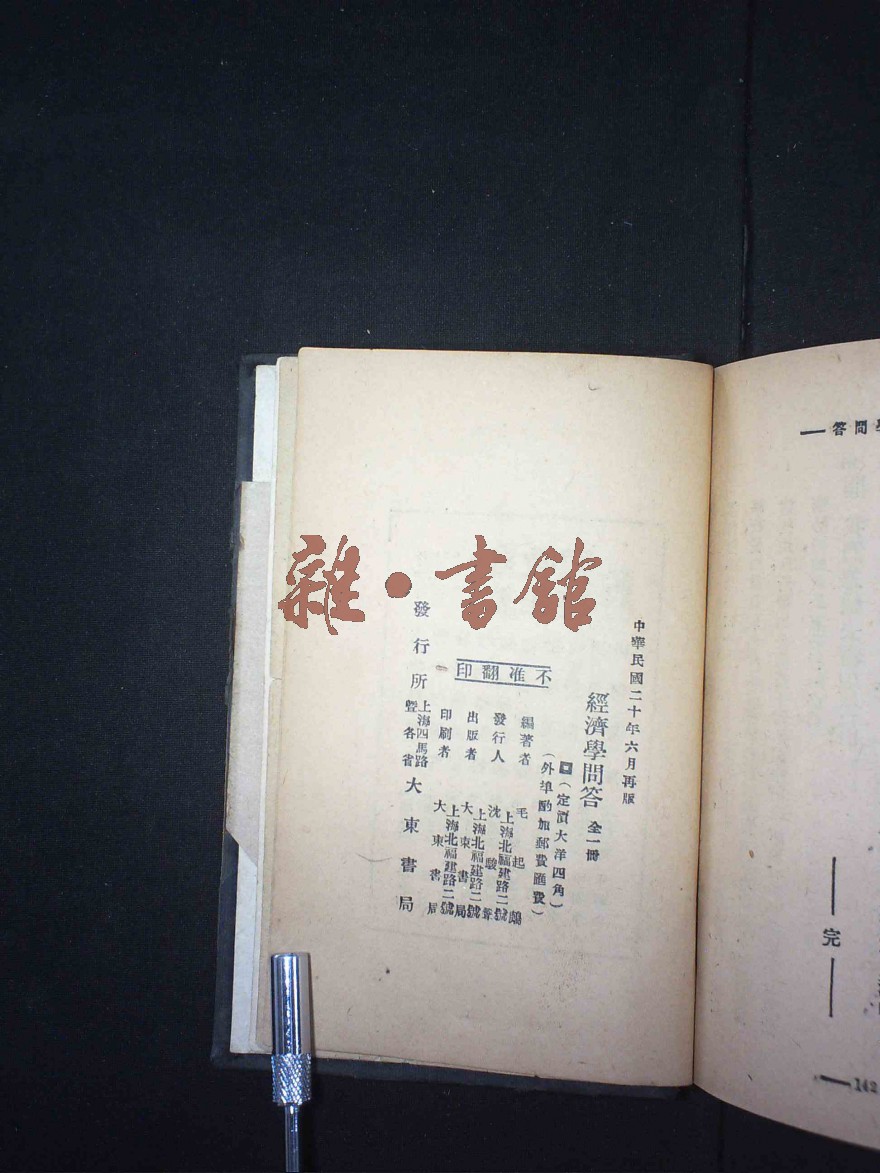 學問答
完
142
中華民國二十年六月再版
經濟學問答 全一冊
(定價大洋四角)
(外埠酌加郵費匯費)
不准翻印
編著者 毛起鵕
發行人 沈駿聲
上海北福建路二號
出版者 大東書局
上海北福建路二號
印刷者 大東書局
上海北福建路二號
發行所 上海四馬路暨各省 大東書局
雜·書館